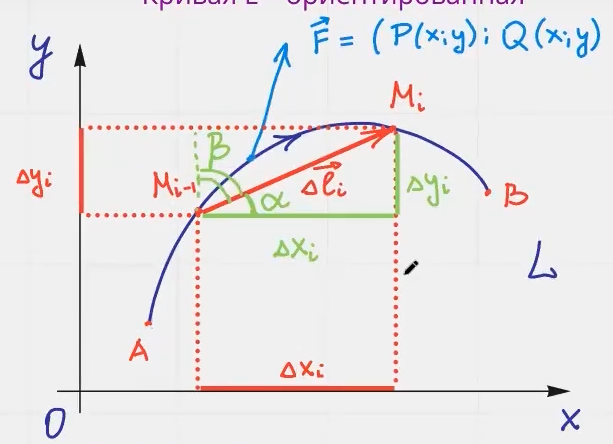 Кривая L - ориентированная
y
F⃗ = (P(x;y); Q(x;y)
M_i
β
Δy_i
M_{i-1}
Δl⃗_i
α
Δy_i
B
Δx_i
L
A
Δx_i
0
x